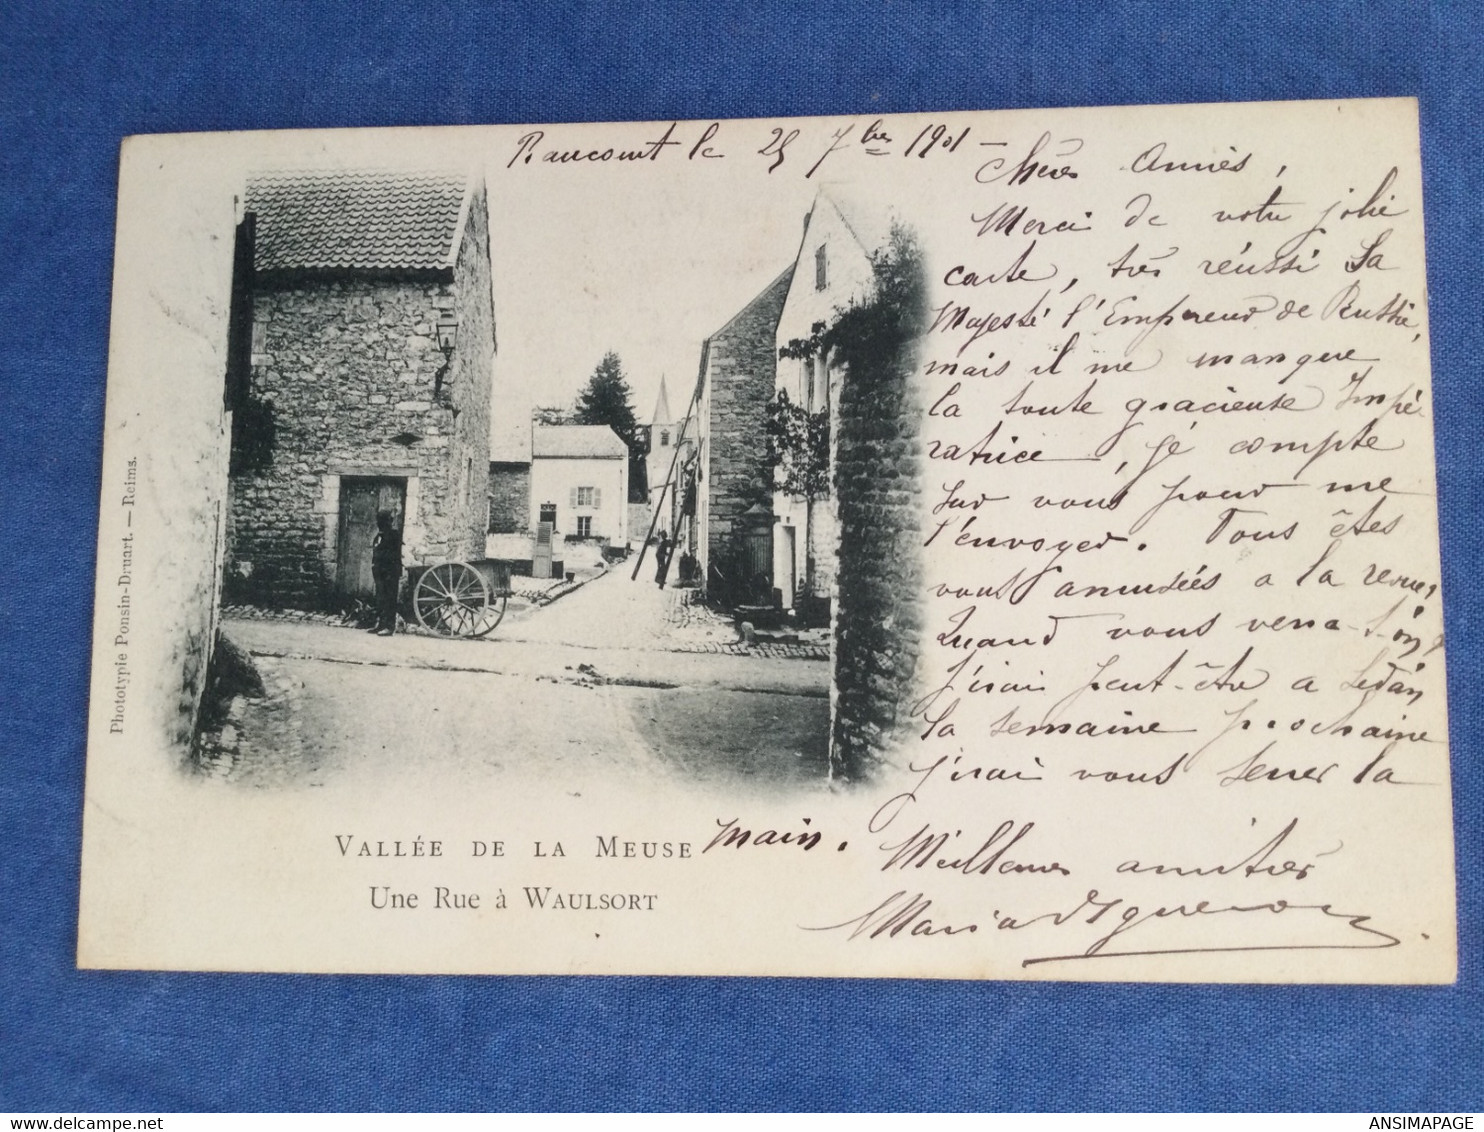 Raucourt le 25 7bre 1901 –
Chères Amies,
Merci de votre jolie
carte, très réussi Sa
Majesté l'Empereur de Russie,
mais il me manque
la toute gracieuse Impé-
ratrice, je compte
sur vous pour me
l'envoyer. Vous êtes
vous amusées a la revue?
Quand vous verra-t-on?
J'irai peut-être a Sedan
la semaine prochaine
j'irai vous serrer la
main.
Meilleures amitiés
Maria
Phototypie Ponsin-Druart. — Reims.
VALLÉE DE LA MEUSE
Une Rue à WAULSORT
delcampe.net
ANSIMAPAGE